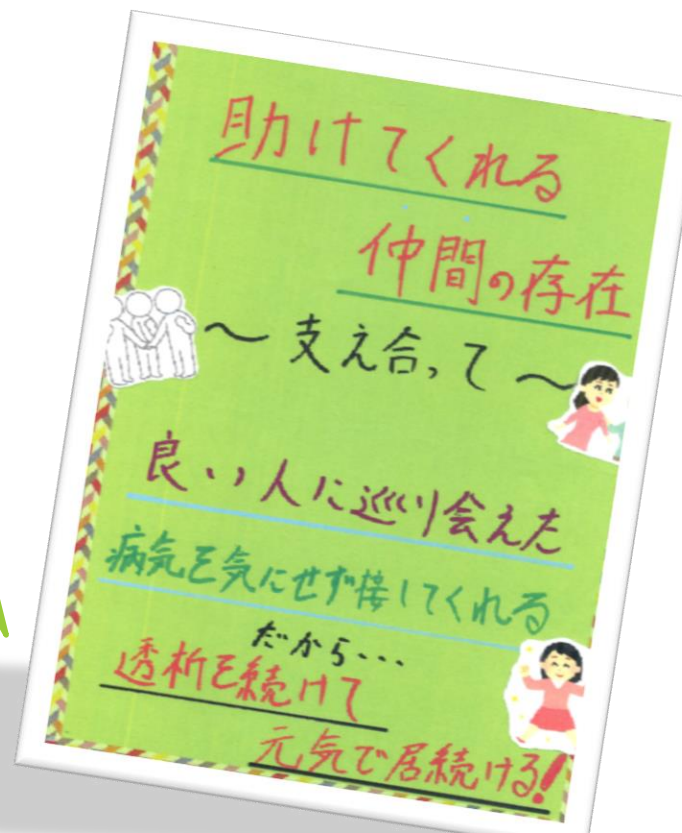 助けてくれる
仲間の存在
～支え合って～
良い人に巡り会えた
病気を気にせず接してくれる
だから・・・
透析を続けて
元気で居続ける!